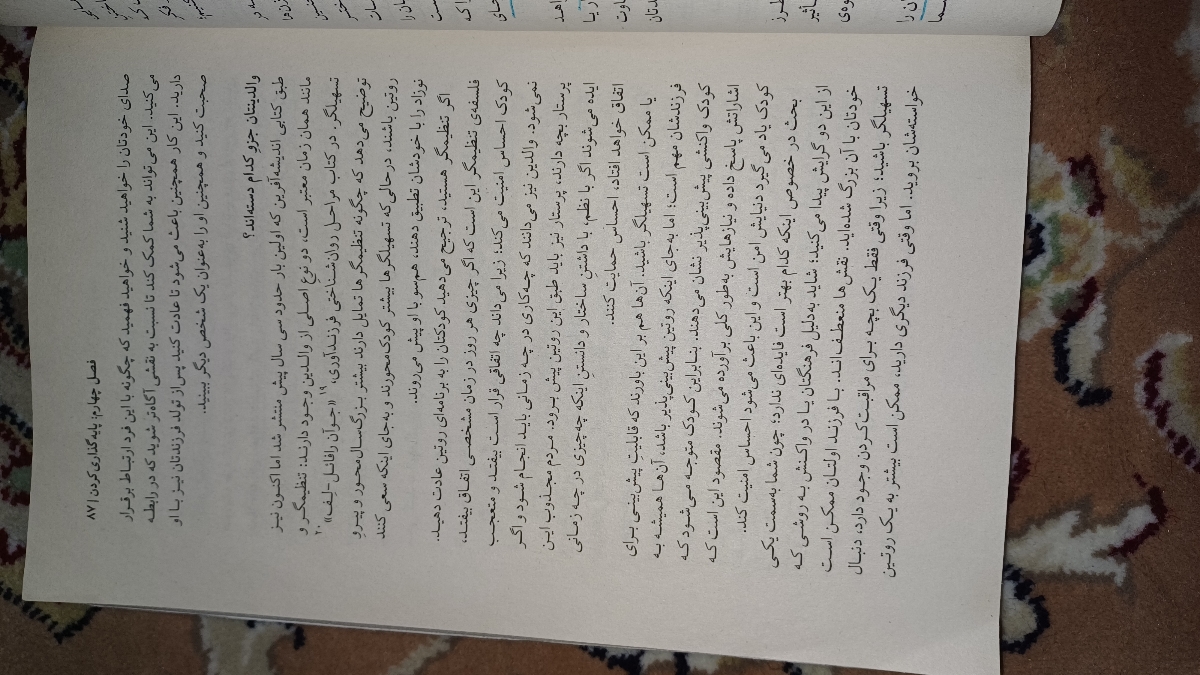 فصل چهارم: پایه‌گذاری کردن | ۸۷
صدای خودتان را خواهید شنید و خواهید فهمید که چگونه با این فرد ارتباط برقرار
می‌کنید. این می‌تواند به شما کمک کند تا نسبت به نقشی آگاه‌تر شوید که در رابطه
دارید. این کار همچنین باعث می‌شود تا عادت کنید پس از تولد فرزندتان نیز با او
صحبت کنید و همچنین او را به‌عنوان یک شخص دیگر ببینید.
والدینتان جزو کدام دسته‌اند؟
طبق کتابی اندیشه‌آفرین که اولین بار حدود سی سال پیش منتشر شد اما اکنون نیز
مانند همان زمان معتبر است، دو نوع اصلی از والدین وجود دارند: تنظیمگر و
تسهیلگر. در کتاب مراحل روان‌شناختی فرزندآوری،۱۹ «جوآن رافائل-لِف»۲۰
توضیح می‌دهد که چگونه تنظیمگرها تمایل دارند بیشتر بزرگ‌سال‌محور و پیرو
روتین باشند، درحالی که تسهیلگرها بیشتر کودک‌محورند و به‌جای اینکه سعی کنند
نوزاد را با خودشان تطبیق دهند، هم‌سو با او پیش می‌روند.
اگر تنظیمگر هستید، ترجیح می‌دهید کودکتان را به برنامه‌ای روتین عادت دهید.
فلسفه‌ی تنظیمگر این است که اگر چیزی هر روز در زمان مشخصی اتفاق بیفتد،
کودک احساس امنیت می‌کند؛ زیرا می‌داند چه اتفاقی قرار است بیفتد و متعجب
نمی‌شود. والدین نیز می‌دانند که چه‌کاری در چه زمانی باید انجام شود و اگر
پرستار بچه دارند، پرستار نیز باید طبق این روتین پیش برود. مردم مجذوب این
ایده می‌شوند اگر با نظم، با داشتنِ ساختار و دانستنِ اینکه چه‌چیزی در چه زمانی
اتفاق خواهد افتاد، احساس حمایت کنند.
یا ممکن است تسهیلگر باشید. آن‌ها هم بر این باورند که قابلیتِ پیش‌بینی برای
فرزندشان مهم است؛ اما به‌جای اینکه روتین پیش‌بینی‌پذیر باشد، آن‌ها همیشه به
کودک واکنشی پیش‌بینی‌پذیر نشان می‌دهند. بنابراین کودک متوجه می‌شود که
اشاراتش پاسخ داده و نیازهایش به‌طور کلی برآورده می‌شوند. مقصود این است که
کودک یاد می‌گیرد دنیایش امن است و این باعث می‌شود احساس امنیت کند.
بحث در خصوص اینکه کدام بهتر است فایده‌ای ندارد؛ چون شما به‌سمت یکی
از این دو گرایش پیدا می‌کنید؛ شاید به‌دلیل فرهنگتان یا در واکنش به روشی که
خودتان با آن بزرگ شده‌اید. نقش‌ها منعطف‌اند. با فرزند اولتان ممکن است
تسهیلگر باشید؛ زیرا وقتی فقط یک بچه برای مراقبت‌کردن وجود دارد، دنبال
خواسته‌شان بروید. اما وقتی فرزند دیگری دارید، ممکن است بیشتر به یک روتین